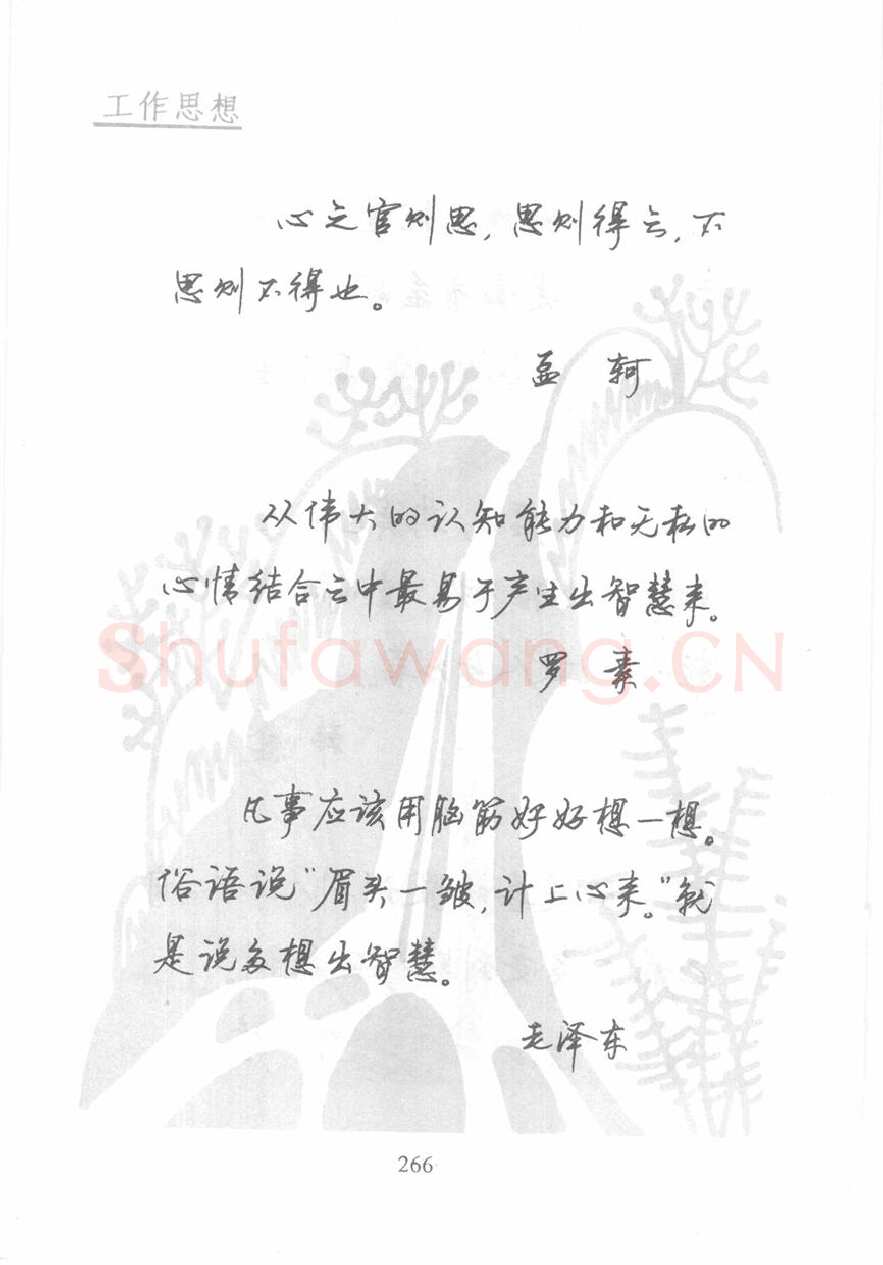 工作思想
心之官则思,思则得之,不
思则不得也。
孟 轲
从伟大的认知能力和无私的
心情结合之中最易于产生出智慧来。
Shufawang.CN
罗 素
凡事应该用脑筋好好想一想。
俗语说“眉头一皱,计上心来。”就
是说多想出智慧。
毛泽东
266